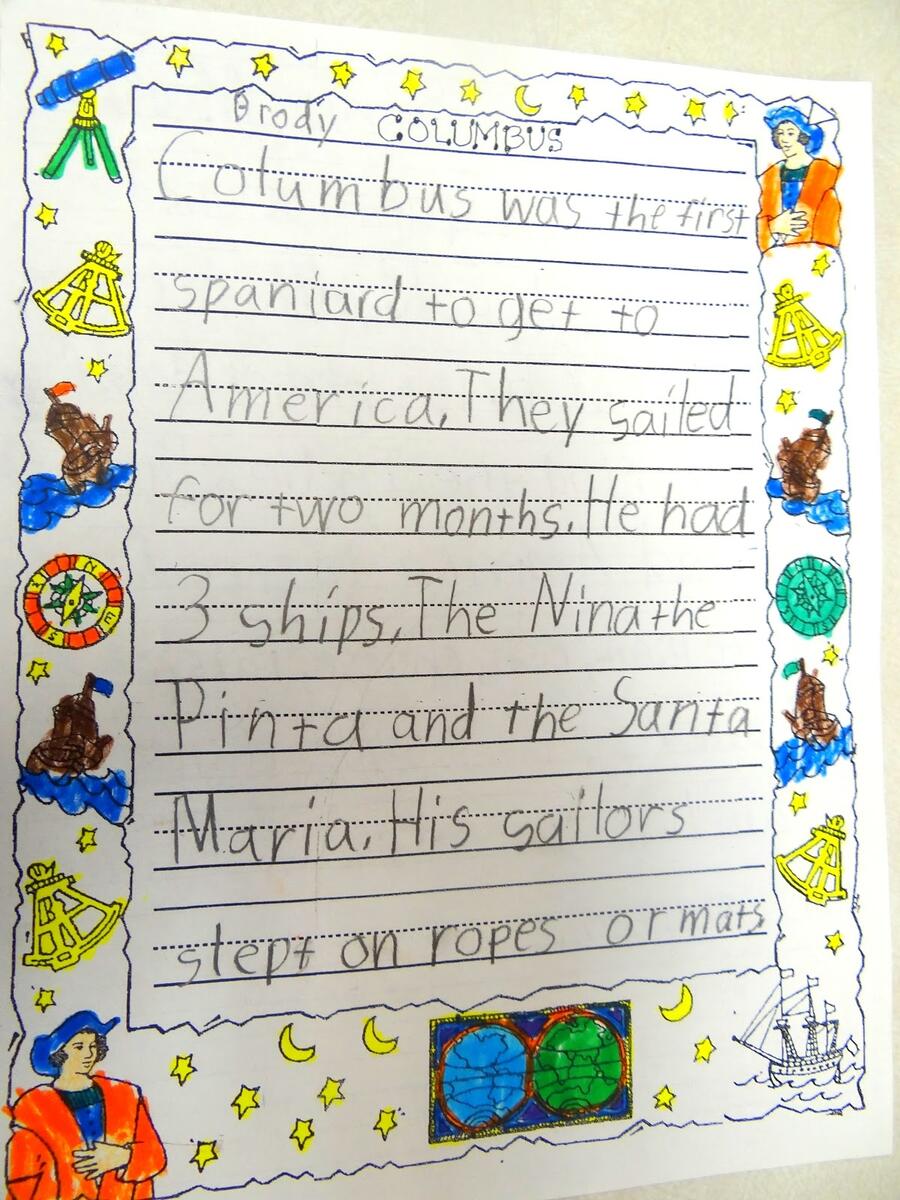 Brody COLUMBUS
Columbus was the first
spaniard to get to
America. They sailed
for two months. He had
3 ships. The Nina the
Pinta and the Santa
Maria. His sailors
slept on ropes or mats